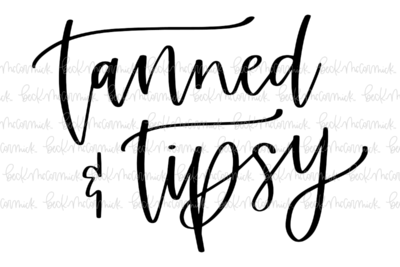 Tanned
& Tipsy